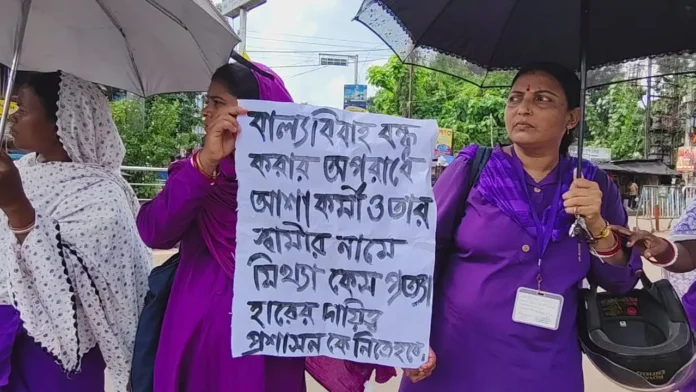 বাল্যবিবাহ বন্ধ
করার অপরাধে
আশা কর্মী ও তার
স্বামীর নামে
মিথ্যা কেস প্রত্যা
হারের দায়িত্ব
প্রশাসন কে নিতে হবে,